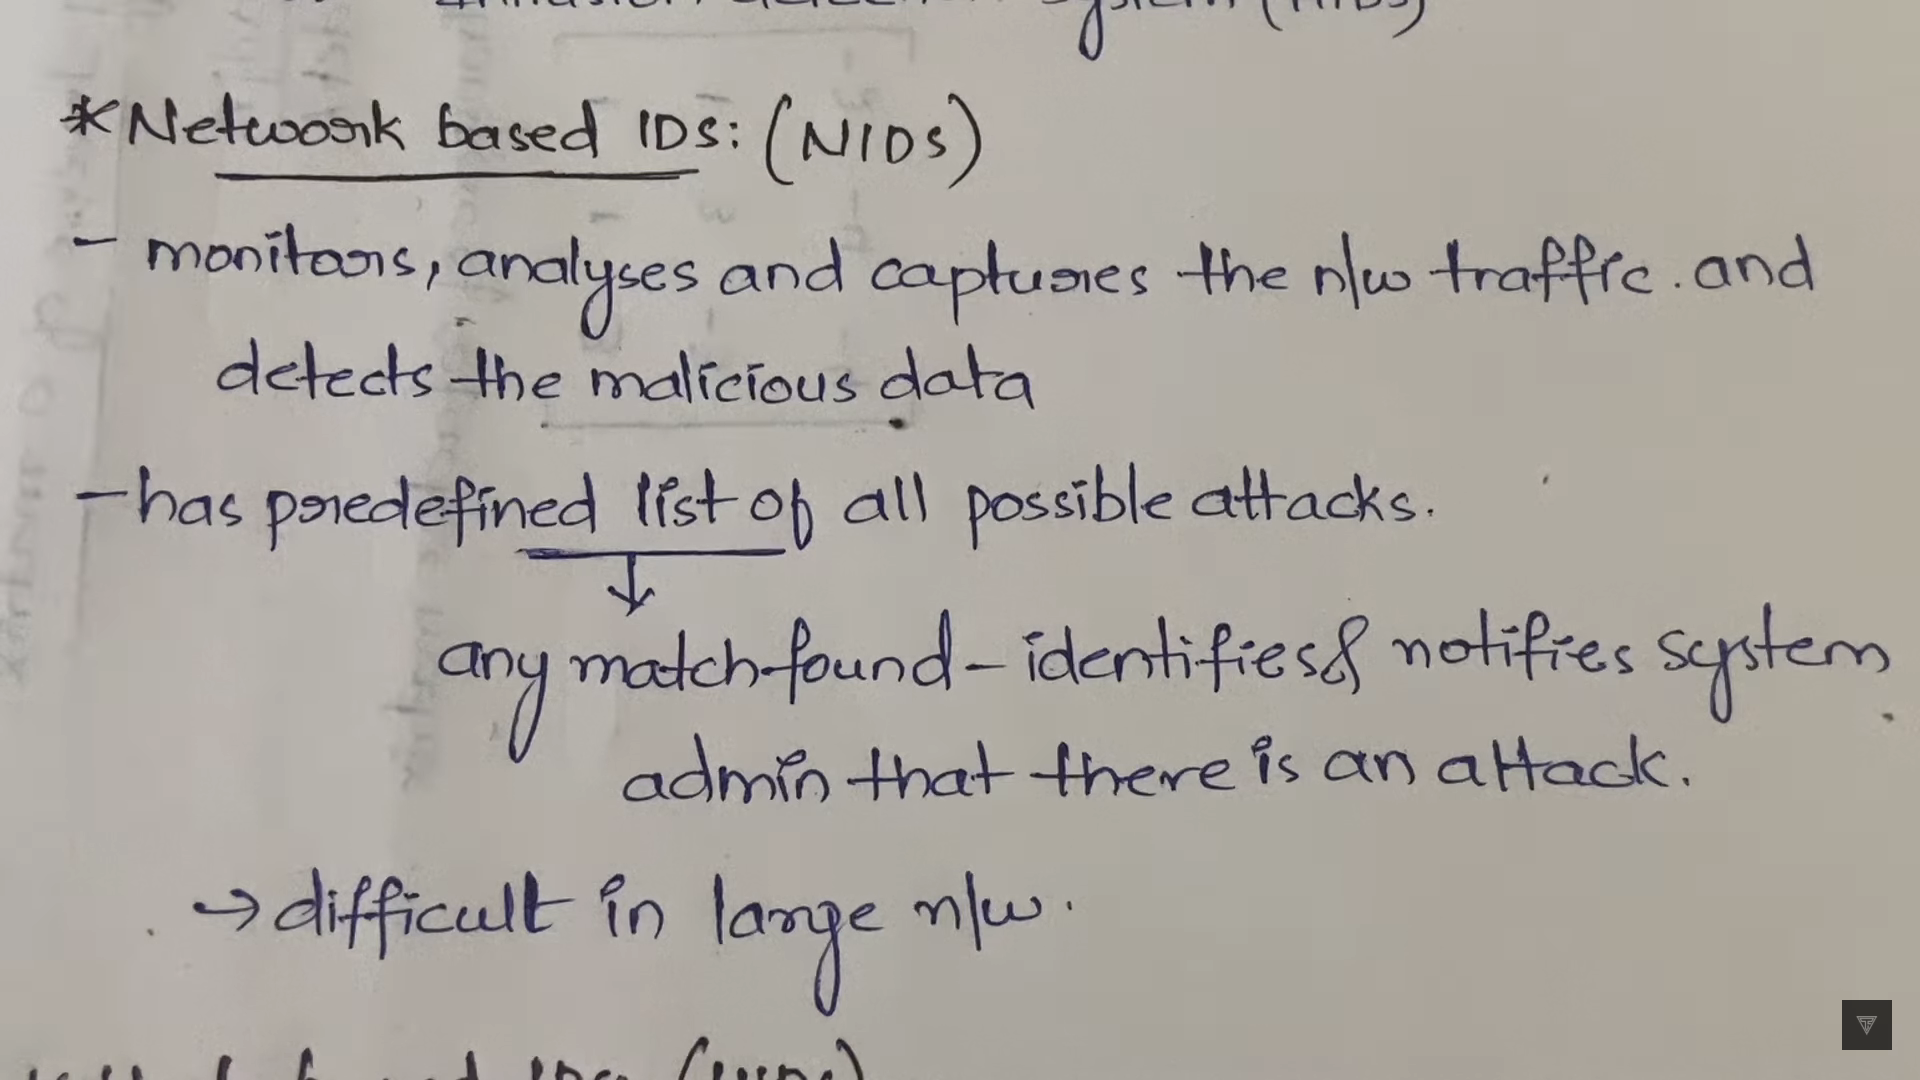 System (HIDS)
*Network based IDS: (NIDS)
- monitors, analyses and captures the n/w traffic. and
detects the malicious data
- has predefined list of all possible attacks.
↓
any match found - identifies & notifies system
admin that there is an attack.
→ difficult in large n/w.